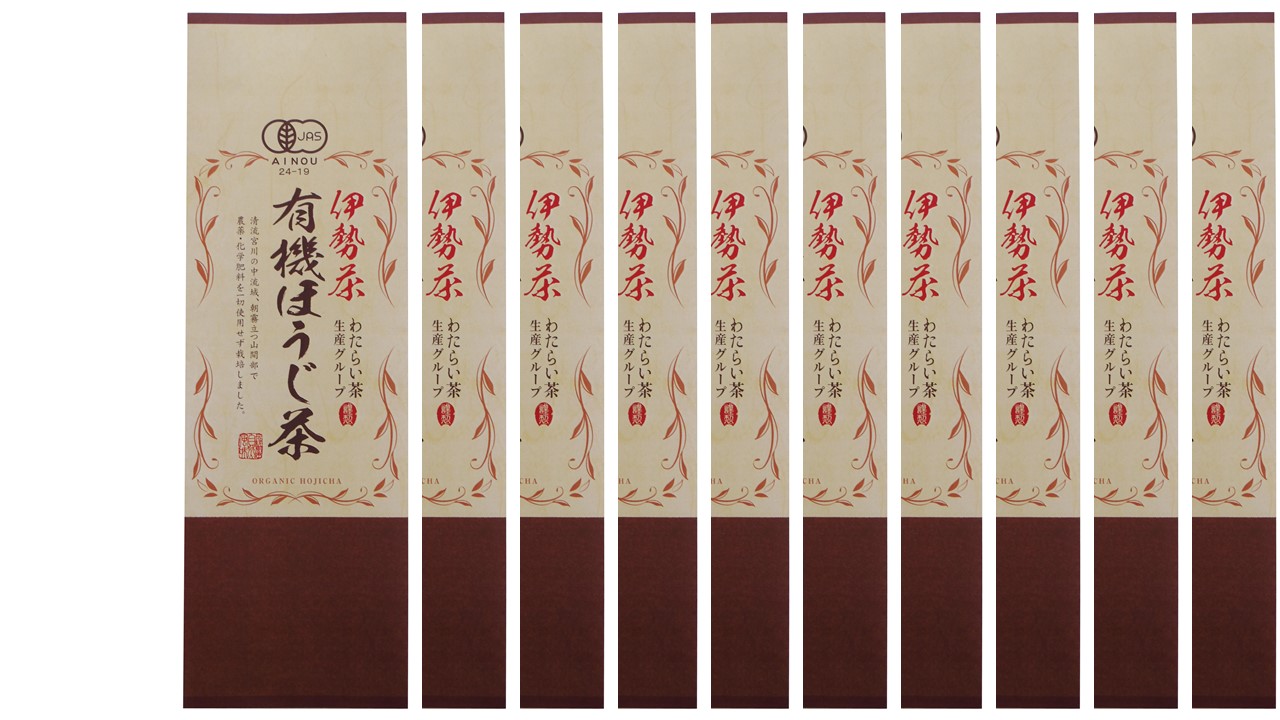 JAS
AINOU
24-19
伊勢茶
わたらい茶
生産グループ
謹製
有機ほうじ茶
清流宮川の中流域、朝霧立つ山間部で
農薬・化学肥料を一切使用せず栽培しました。
ORGANIC HOJICHA
伊勢茶
わたらい茶
生産グループ
謹製
CHA
伊勢茶
わたらい茶
生産グループ
謹製
ICHA
伊勢茶
わたらい茶
生産グループ
謹製
HA
伊勢茶
わたらい茶
生産グループ
謹製
HA
伊勢茶
わたらい茶
生産グループ
謹製
CHA
伊勢茶
わたらい茶
生産グループ
謹製
HA
伊勢茶
わたらい茶
生産グループ
謹製
CHA
伊勢茶
わたらい茶
生産グループ
謹製
CHA
伊勢茶
わたらい茶
生産グループ
謹製
CHA